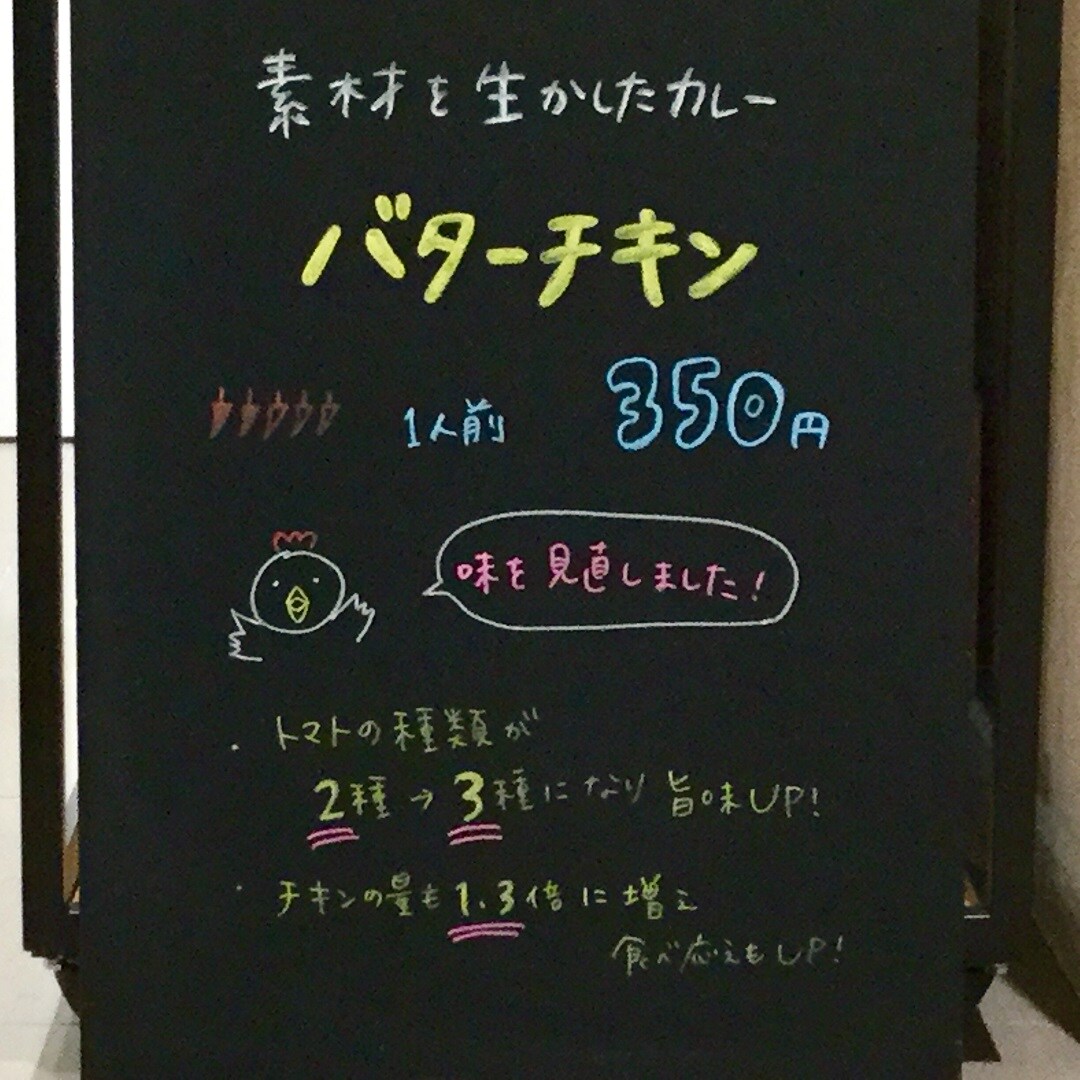 素材を生かしたカレー
バターチキン
1人前 350円
味を見直しました!
・トマトの種類が
2種→3種になり 旨味UP!
・チキンの量も1.3倍に増え
食べ応えもUP!